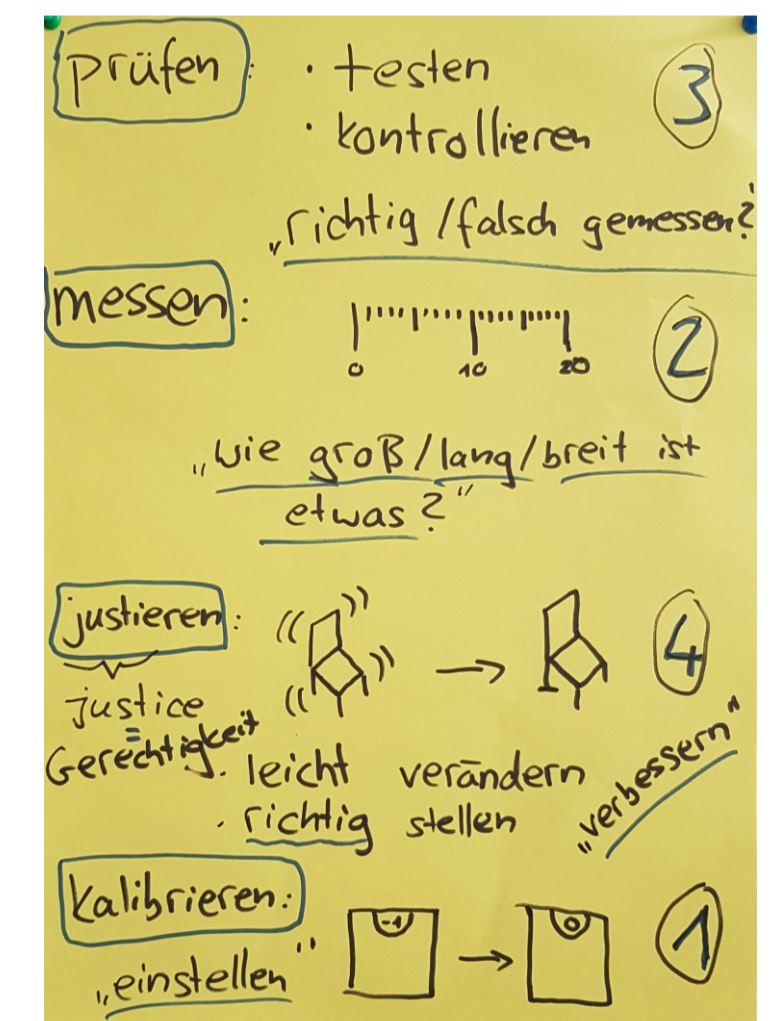 prüfen: · testen ③
· kontrollieren
„richtig / falsch gemessen?"
messen: ②
0 10 20
„Wie groß / lang / breit ist
etwas?"
justieren: ④
justice
=
Gerechtigkeit
· leicht verändern
· richtig stellen
„verbessern"
kalibrieren: -1 → 0 ①
„einstellen"